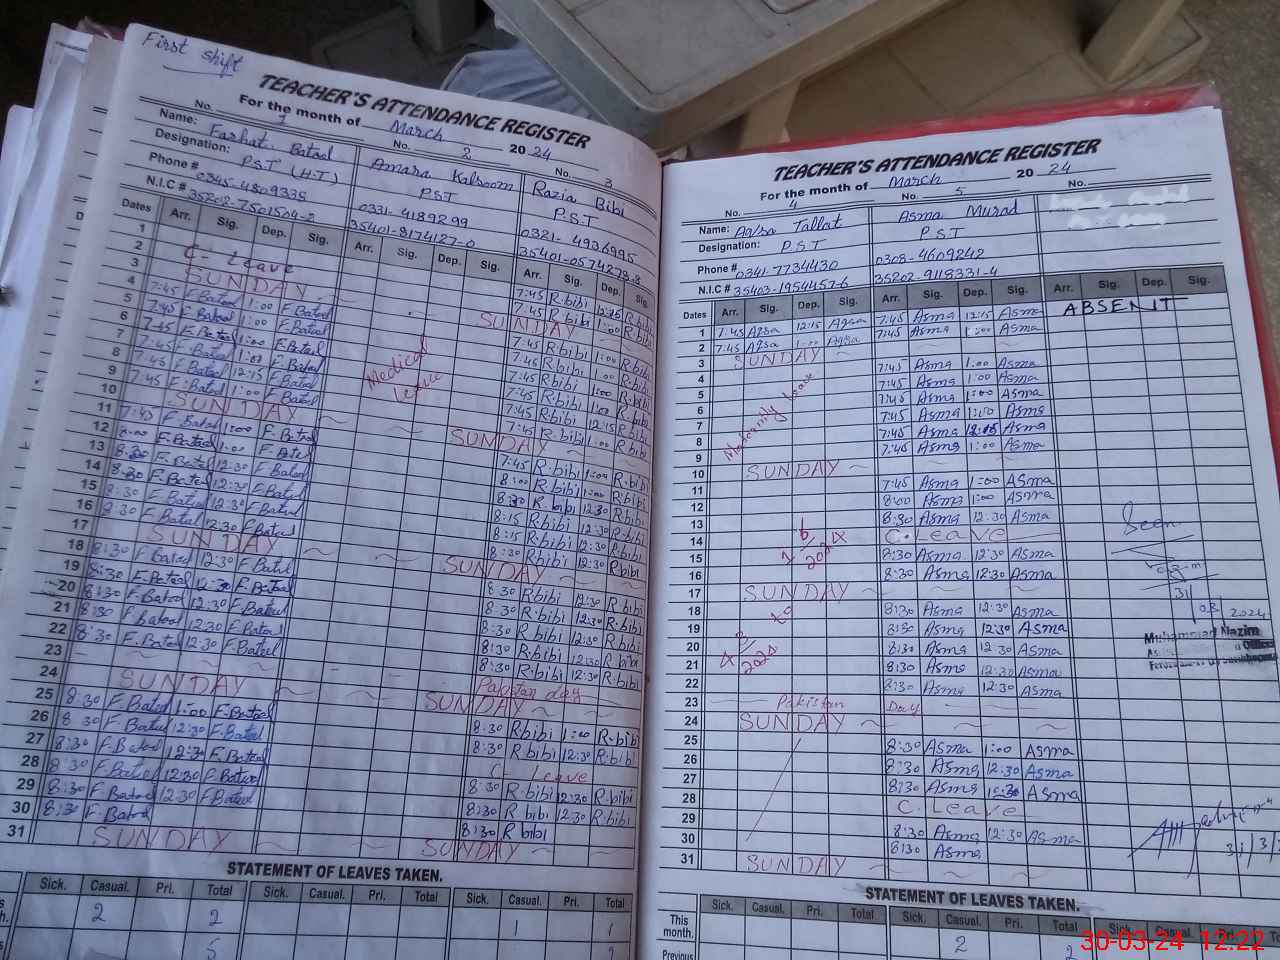 First shift
TEACHER'S ATTENDANCE REGISTER
For the month of March 2024
No. 1 No. 2 No. 3
Name: Farhat Batool Amara Kalsoom Razia Bibi
Designation: P.S.T (H.T) P.S.T P.S.T
Phone # 0345-4809335 0331-4189299 0321-4936995
N.I.C # 35202-7501504-2 35401-8174127-0 35401-0574278-8
Dates Arr. Sig. Dep. Sig. Arr. Sig. Dep. Sig. Arr. Sig. Dep. Sig.
1 7:45 R.bibi 12:15 R.bibi
2 C- Leave 7:45 R.bibi 1:00 R.bibi
3 SUNDAY SUNDAY
4 7:45 F.Batool 1:00 F.Batool 7:45 R.bibi 1:00 R.bibi
5 7:45 F.Batool 1:00 F.Batool 7:45 R.bibi 1:00 R.bibi
6 7:45 F.Batool 1:00 F.Batool 7:45 R.bibi 1:00 R.bibi
7 7:45 F.Batool 1:00 F.Batool 7:45 R.bibi 1:00 R.bibi
8 7:45 F.Batool 12:15 F.Batool 7:45 R.bibi 12:15 R.bibi
9 7:45 F.Batool 1:00 F.Batool 7:45 R.bibi 1:00 R.bibi
Medical Leave
10 SUNDAY SUNDAY
11 7:45 F.Batool 1:00 F.Batool 7:45 R.bibi 1:00 R.bibi
12 8:00 F.Batool 1:00 F.Batool 8:00 R.bibi 1:00 R.bibi
13 8:30 F.Batool 12:30 F.Batool 8:30 R.bibi 12:30 R.bibi
14 8:30 F.Batool 12:30 F.Batool 8:15 R.bibi 12:30 R.bibi
15 8:30 F.Batool 12:30 F.Batool 8:15 R.bibi 12:30 R.bibi
16 8:30 F.Batool 12:30 F.Batool 8:30 R.bibi 12:30 R.bibi
17 SUNDAY SUNDAY
18 8:30 F.Batool 12:30 F.Batool 8:30 R.bibi 12:30 R.bibi
19 8:30 F.Batool 12:30 F.Batool 8:30 R.bibi 12:30 R.bibi
20 8:30 F.Batool 12:30 F.Batool 8:30 R.bibi 12:30 R.bibi
21 8:30 F.Batool 12:30 F.Batool 8:30 R.bibi 12:30 R.bibi
22 8:30 F.Batool 12:30 F.Batool 8:30 R.bibi 12:30 R.bibi
23 Pakistan day
24 SUNDAY SUNDAY
25 8:30 F.Batool 1:00 F.Batool 8:30 R.bibi 1:00 R.bibi
26 8:30 F.Batool 12:30 F.Batool 8:30 R.bibi 12:30 R.bibi
27 8:30 F.Batool 12:30 F.Batool C Leave
28 8:30 F.Batool 12:30 F.Batool 8:30 R.bibi 12:30 R.bibi
29 8:30 F.Batool 12:30 F.Batool 8:30 R bibi 12:30 R.bibi
30 8:30 F.Batool 8:30 R bibi
31 SUNDAY SUNDAY
STATEMENT OF LEAVES TAKEN.
Sick. Casual. Pri. Total Sick. Casual. Pri. Total Sick. Casual. Pri. Total
2 2 1 1
5
TEACHER'S ATTENDANCE REGISTER
For the month of March 2024
No. 4 No. 5 No.
Name: Aqsa Tallat Asma Murad
Designation: P.S.T P.S.T
Phone # 0341-7734430 0308-4609242
N.I.C # 35403-1954457-6 35202-9118331-4
Dates Arr. Sig. Dep. Sig. Arr. Sig. Dep. Sig. Arr. Sig. Dep. Sig.
1 7:45 Aqsa 12:15 Aqsa 7:45 Asma 12:15 Asma ABSENIT
2 7:45 Aqsa 1:00 Aqsa 7:45 Asma 1:00 Asma
3 SUNDAY
4 7:45 Asma 1:00 Asma
5 7:45 Asma 1:00 Asma
6 7:45 Asma 1:00 Asma
7 7:45 Asma 1:00 Asma
8 7:45 Asma 12:15 Asma
9 7:45 Asma 1:00 Asma
Maternity leave
10 SUNDAY
11 7:45 Asma 1:00 Asma
12 8:00 Asma 1:00 Asma
13 8:30 Asma 12:30 Asma
14 C. Leave
15 8:30 Asma 12:30 Asma
16 8:30 Asma 12:30 Asma
17 SUNDAY
18 8:30 Asma 12:30 Asma
19 8:30 Asma 12:30 Asma
20 8:30 Asma 12:30 Asma
21 8:30 Asma 12:30 Asma
22 8:30 Asma 12:30 Asma
4 3 2024 to 1 6 2024
Seen
31 03 2024
Muhammad Nazim
23 Pakistan Day
24 SUNDAY
25 8:30 Asma 1:00 Asma
26 8:30 Asma 12:30 Asma
27 8:30 Asma 12:30 Asma
28 C. Leave
29 8:30 Asma 12:30 Asma
30 8:30 Asma
31 SUNDAY
31/3/
STATEMENT OF LEAVES TAKEN.
Sick. Casual. Pri. Total Sick. Casual. Pri. Total Sick. Casual.
This month. 2 2
Previous
30-03-24 12:22